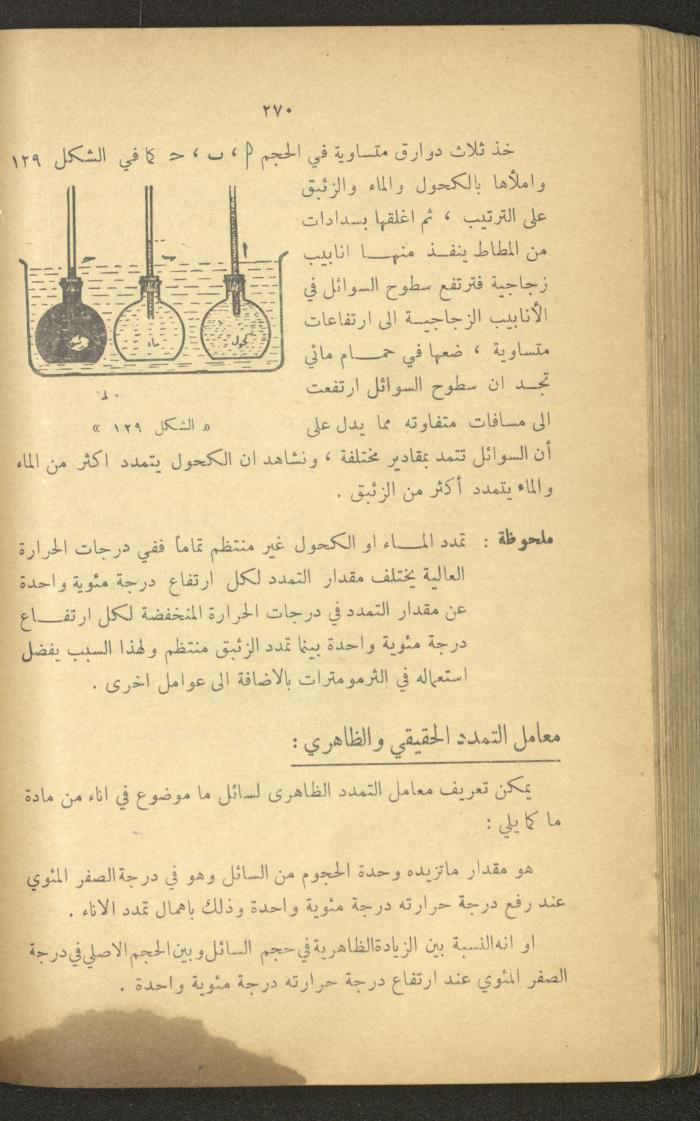 ٢٧٠
خذ ثلاث دوارق متساوية في الحجم ا ، ب ، ح كما في الشكل ١٢٩
واملأها بالكحول والماء والزئبق
على الترتيب ، ثم اغلقها بسدادات
من المطاط ينفـذ منهـا انابيب
زجاجية فترتفع سطوح السوائل في
الأنابيب الزجاجيـة الى ارتفاعات
متساوية ، ضعها في حمـام مائي
تجـد ان سطوح السوائل ارتفعت
الى مسافات متفاوته مما يدل على
ا
ب
ح
كحول
ماء
« الشكل ١٢٩ »
أن السوائل تتمد بمقادير مختلفة ، ونشاهد ان الكحول يتمدد اكثر من الماء
والماء يتمدد أكثر من الزئبق .
ملحوظة : تمدد المـاء او الكحول غير منتظم تماماً ففي درجات الحرارة
العالية يختلف مقدار التمدد لكل ارتفاع درجة مئوية واحدة
عن مقدار التمدد في درجات الحرارة المنخفضة لكل ارتفـاع
درجة مئوية واحدة بينما تمدد الزئبق منتظم ولهذا السبب يفضل
استعماله في الثرمومترات بالاضافة الى عوامل اخرى .
معامل التمدد الحقيقي والظاهري :
يمكن تعريف معامل التمدد الظاهرى لسائل ما موضوع في اناء من مادة
ما كما يلي :
هو مقدار ماتزيده وحدة الحجوم من السائل وهو في درجة الصفر المئوي
عند رفع درجة حرارته درجة مئوية واحدة وذلك باهمال تمدد الاناء .
او انه النسبة بين الزيادة الظاهرية في حجم السائل وبين الحجم الاصلي في درجة
الصفر المئوي عند ارتفاع درجة حرارته درجة مئوية واحدة .